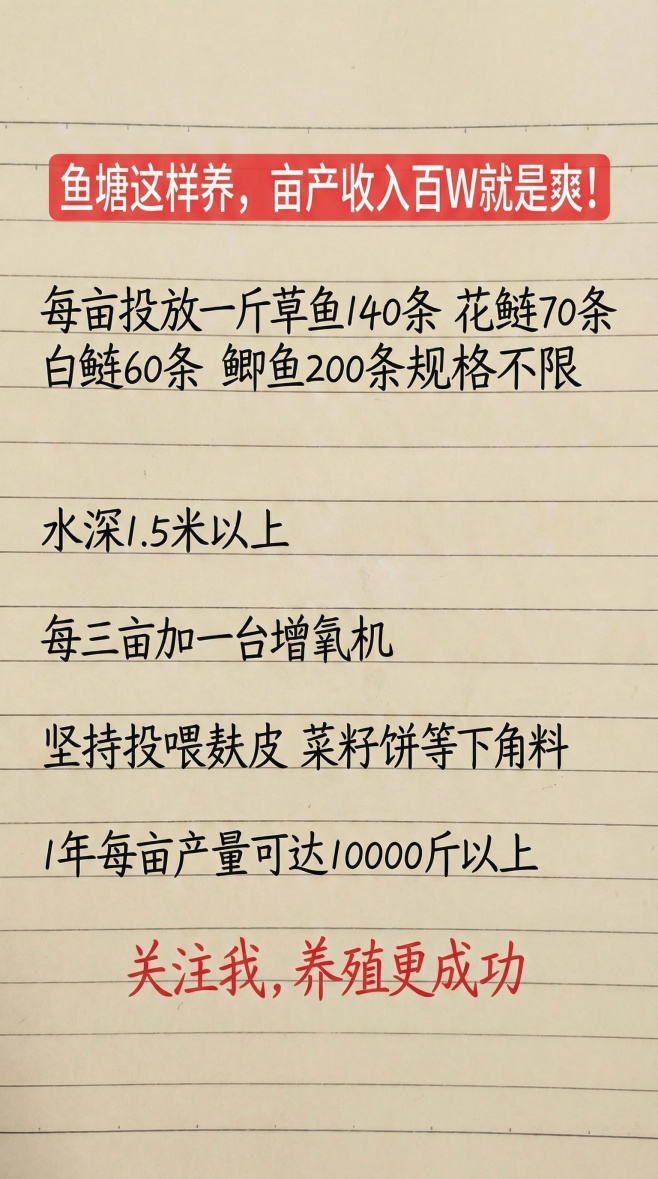 鱼塘这样养，亩产收入百W就是爽！
每亩投放一斤草鱼140条 花鲢70条
白鲢60条 鲫鱼200条规格不限
水深1.5米以上
每三亩加一台增氧机
坚持投喂麸皮 菜籽饼等下角料
1年每亩产量可达10000斤以上
关注我，养殖更成功